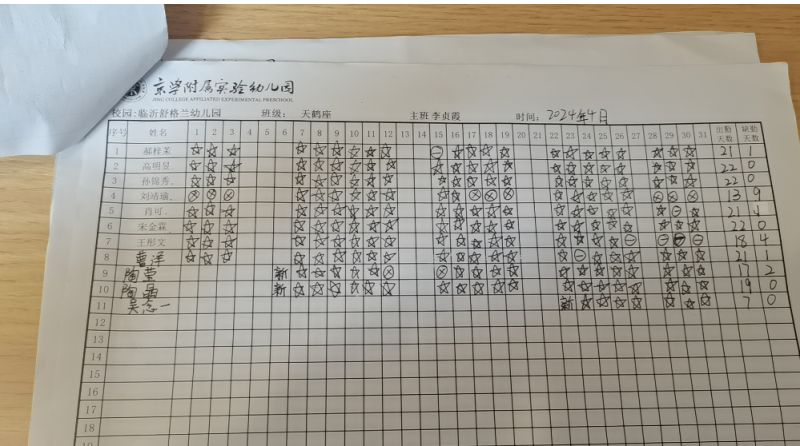 京学附属实验幼儿园
JING COLLEGE AFFILIATED EXPERIMENTAL PRESCHOOL
校园:临沂舒格兰幼儿园 班级: 天鹤座 主班 李贞霞 时间: 2024年4月
序号 姓名 1 2 3 4 5 6 7 8 9 10 11 12 13 14 15 16 17 18 19 20 21 22 23 24 25 26 27 28 29 30 31 出勤天数 缺勤天数
1 郝梓茉 ☆ ☆ ☆ ☆ ☆ ☆ ☆ ☆ ☆ ⊖ ☆ ☆ ☆ ☆ ☆ ☆ ☆ ☆ ☆ ☆ ☆ ☆ 21 1
2 高明昱 ☆ ☆ ☆ ☆ ☆ ☆ ☆ ☆ ☆ ☆ ☆ ☆ ☆ ☆ ☆ ☆ ☆ ☆ ☆ ☆ ☆ ☆ 22 0
3 孙锦秀 ☆ ☆ ☆ ☆ ☆ ☆ ☆ ☆ ☆ ☆ ☆ ☆ ☆ ☆ ☆ ☆ ☆ ☆ ☆ ☆ ☆ ☆ 22 0
4 刘靖瑞 ⊗ ⊗ ⊗ ☆ ☆ ☆ ☆ ☆ ☆ ☆ ☆ ⊗ ⊗ ⊗ ☆ ☆ ☆ ☆ ☆ ⊗ ⊗ ⊗ 13 9
5 肖可 ☆ ☆ ☆ ☆ ☆ ☆ ☆ ☆ ☆ ☆ ☆ ☆ ☆ ☆ ☆ ☆ ☆ ☆ ☆ ☆ ⊖ ☆ 21 1
6 宋金霖 ☆ ☆ ☆ ☆ ☆ ☆ ☆ ☆ ☆ ☆ ☆ ☆ ☆ ☆ ☆ ☆ ☆ ☆ ☆ ☆ ☆ ☆ 22 0
7 王彤文 ☆ ☆ ☆ ☆ ☆ ☆ ☆ ☆ ☆ ☆ ☆ ☆ ☆ ☆ ☆ ☆ ☆ ☆ ⊖ ⊖ ⊖ ⊖ 18 4
8 曹泽 ☆ ☆ ☆ ☆ ☆ ☆ ☆ ☆ ☆ ☆ ☆ ☆ ☆ ☆ ☆ ⊖ ☆ ☆ ☆ ☆ ☆ ☆ 21 1
9 陶莹 新 ☆ ☆ ☆ ☆ ☆ ⊗ ⊗ ☆ ☆ ☆ ☆ ☆ ☆ ☆ ☆ ☆ ☆ ☆ ☆ 17 2
10 陶晶 新 ☆ ☆ ☆ ☆ ☆ ☆ ☆ ☆ ☆ ☆ ☆ ☆ ☆ ☆ ☆ ☆ ☆ ☆ ☆ 19 0
11 吴念一 新 ☆ ☆ ☆ ☆ ☆ ☆ ☆ 7 0
12
13
14
15
16
17
18